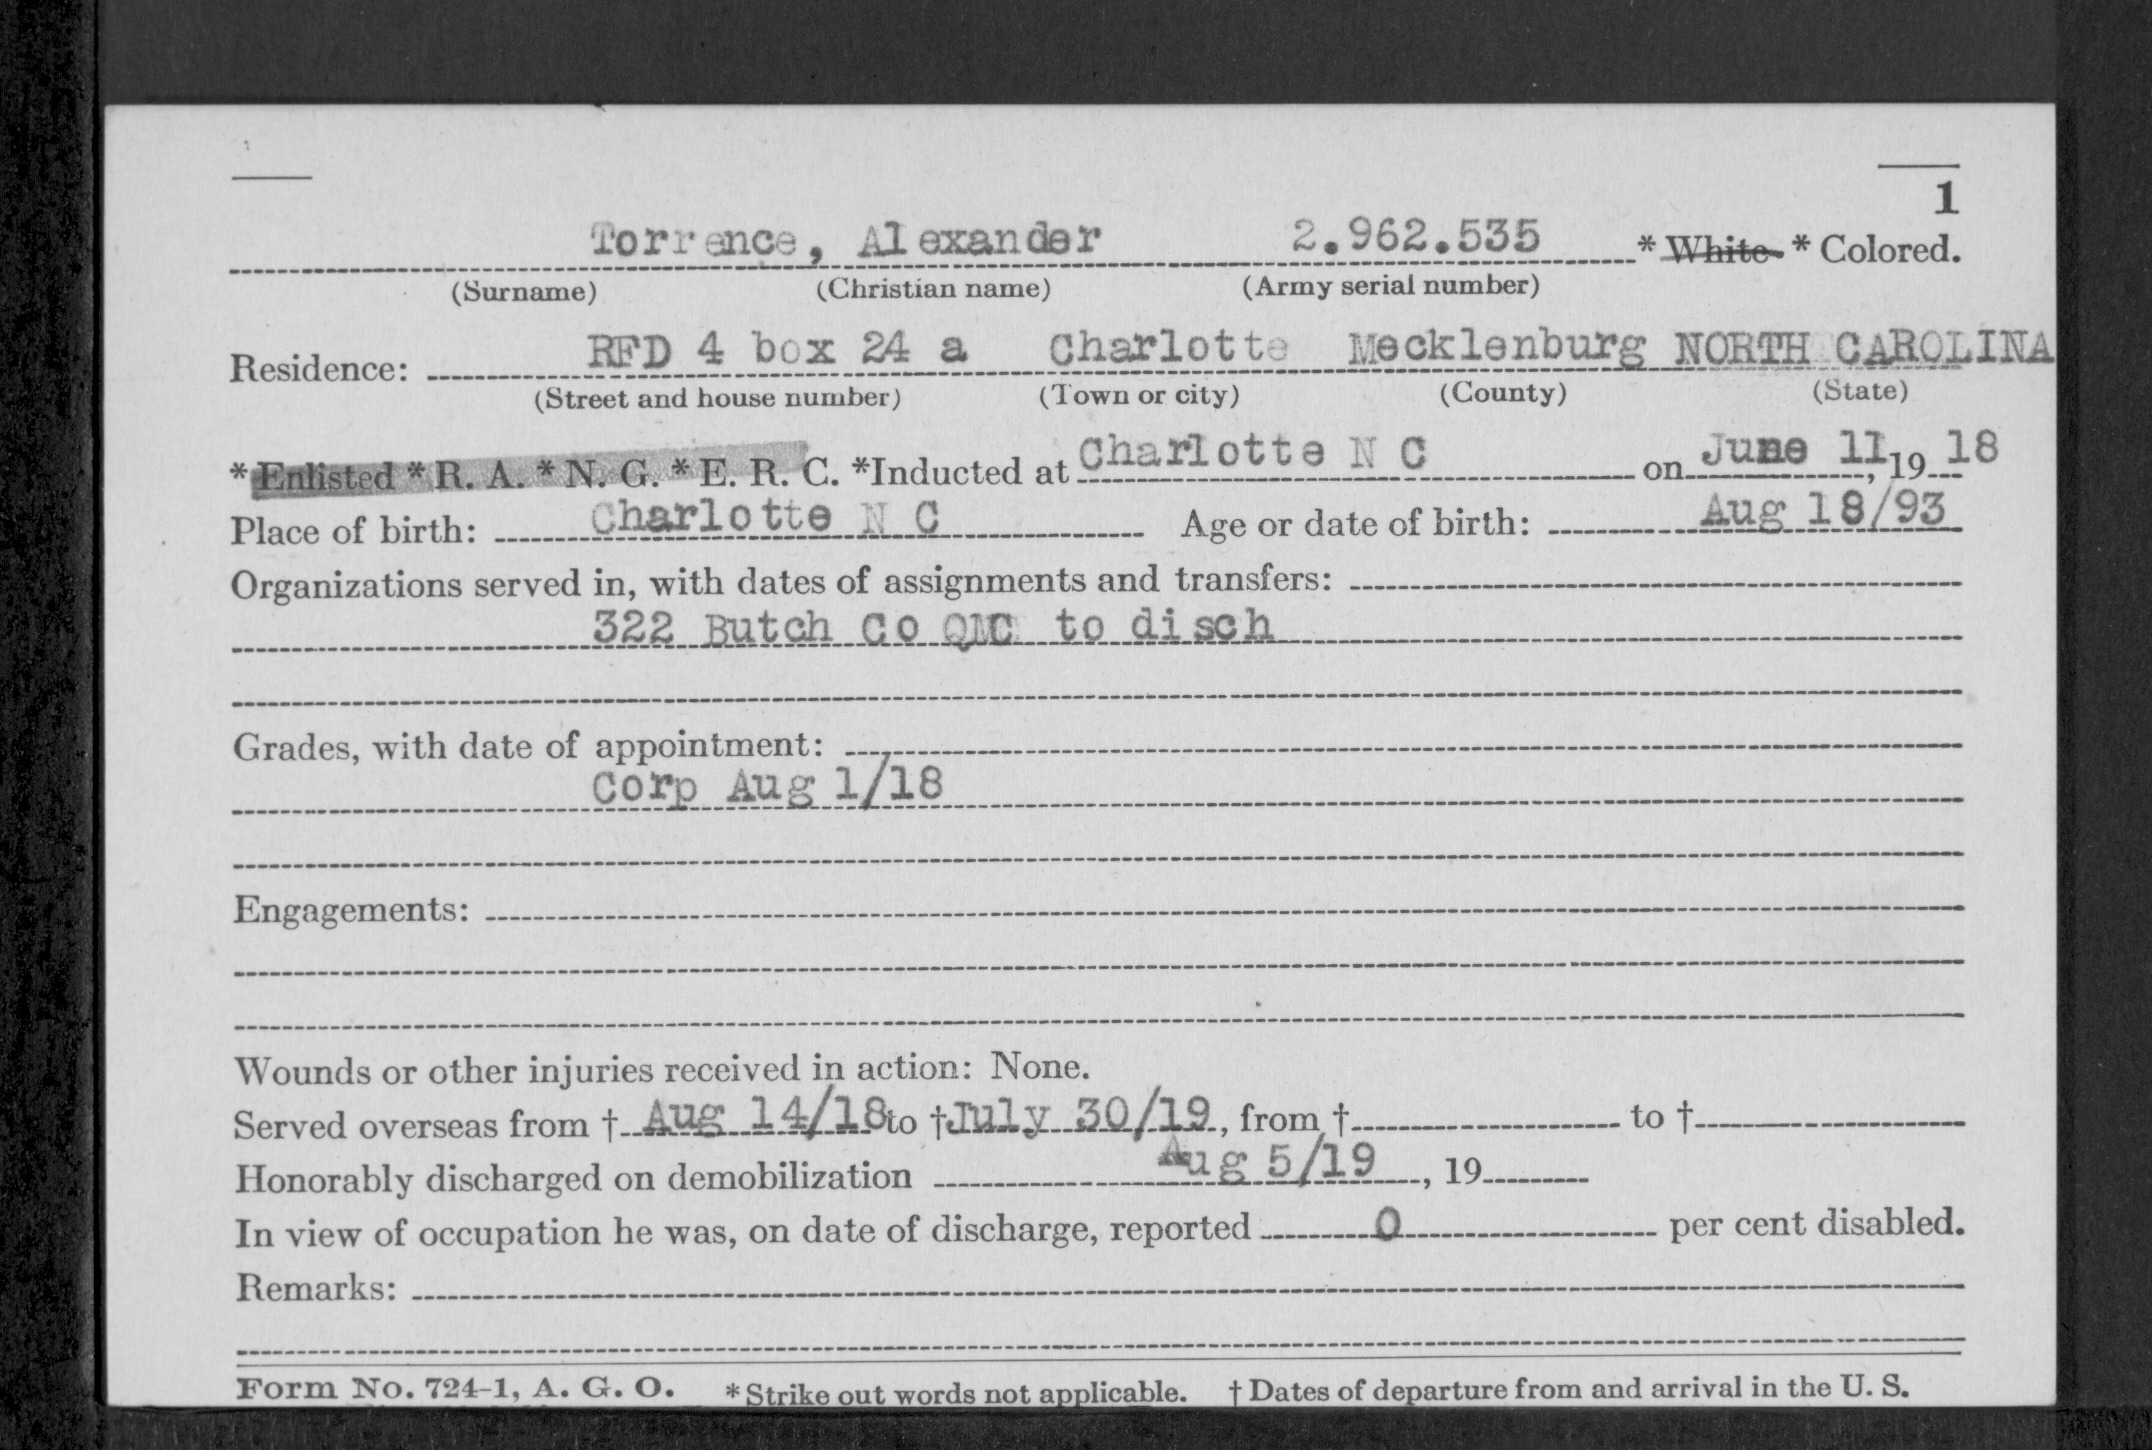 1
Torrence, Alexander 2.962.535 * White * Colored.
(Surname) (Christian name) (Army serial number)
Residence: RFD 4 box 24 a Charlotte Mecklenburg NORTH CAROLINA
(Street and house number) (Town or city) (County) (State)
* Enlisted * R. A. * N. G. * E. R. C. *Inducted at Charlotte N C on June 11, 19 18
Place of birth: Charlotte N C Age or date of birth: Aug 18/93
Organizations served in, with dates of assignments and transfers:
322 Butch Co QMC to disch
Grades, with date of appointment:
Corp Aug 1/18
Engagements:
Wounds or other injuries received in action: None.
Served overseas from † Aug 14/18 to † July 30/19, from † to †
Honorably discharged on demobilization Aug 5/19, 19
In view of occupation he was, on date of discharge, reported 0 per cent disabled.
Remarks:
Form No. 724-1, A. G. O. * Strike out words not applicable. † Dates of departure from and arrival in the U. S.